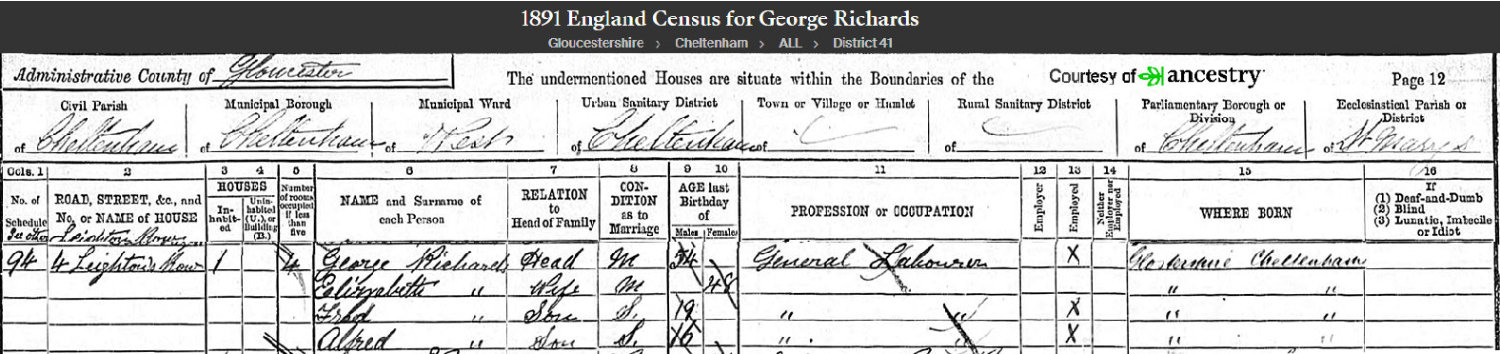 1891 England Census for George Richards
Gloucestershire > Cheltenham > ALL > District 41
Administrative County of Gloucester The undermentioned Houses are situate within the Boundaries of the Courtesy of ancestry Page 12
Civil Parish Municipal Borough Municipal Ward Urban Sanitary District Town or Village or Hamlet Rural Sanitary District Parliamentary Borough or Division Ecclesiastical Parish or District
of Cheltenham of Cheltenham of West of Cheltenham of of of Cheltenham of St Mary's
Cols. 1 2 3 4 5 6 7 8 9 10 11 12 13 14 15 16
No. of Schedule ROAD, STREET, &c., and No. or NAME of HOUSE HOUSES In-habit-ed Unin-habited (U.), or Building (B.) Number of rooms occupied if less than five NAME and Surname of each Person RELATION to Head of Family CON-DITION as to Marriage AGE last Birthday of Males Females PROFESSION or OCCUPATION Employer Employed Neither Employer nor Employed WHERE BORN If (1) Deaf-and-Dumb (2) Blind (3) Lunatic, Imbecile or Idiot
94 4 Leighton's Row 1 4 George Richards Head M 54 General Labourer X Glostershire Cheltenham
Elizabeth " Wife M 48 " "
Fred " Son S. 19 " " X " "
Alfred " Son S. 16 " " X " "